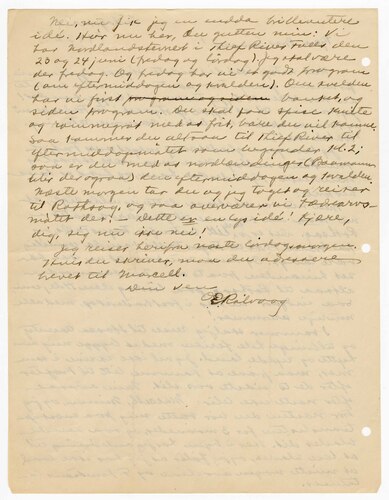 Nei, nu fik jeg en endda brilliantere
ide. Hør nu her, du gutten min: Vi
har Nordlandsstevnet i Thief River Falls den
23 og 24 juni (fredag og lørdag) jeg skal være
der fredag. Og fredag har vi et godt program
(om eftermiddagen og kvelden). Om kvelden
har vi først program og siden banket, og
siden program. Du skal faa spise
og rømmegrøt med os frit, bare du vil komme,
saa kommer du altsaa til Thief River til
eftermiddagsmøtet som begynder kl. 2;
saa er du med os nordlændinger (
blir der ogsaa) den eftermiddagen og kvelden.
Næste morgen tar du og jeg toget og reiser
til Rothsay, og saa overværer vi
møtet der. — Dette er en lys ide! Kjære,
dig, sig nu ikke nei!
Jeg reiser herfra næste lørdag morgen.
Hvis du skriver, maa du adressere
brevet til Marcell.
Din ven
OERølvaag